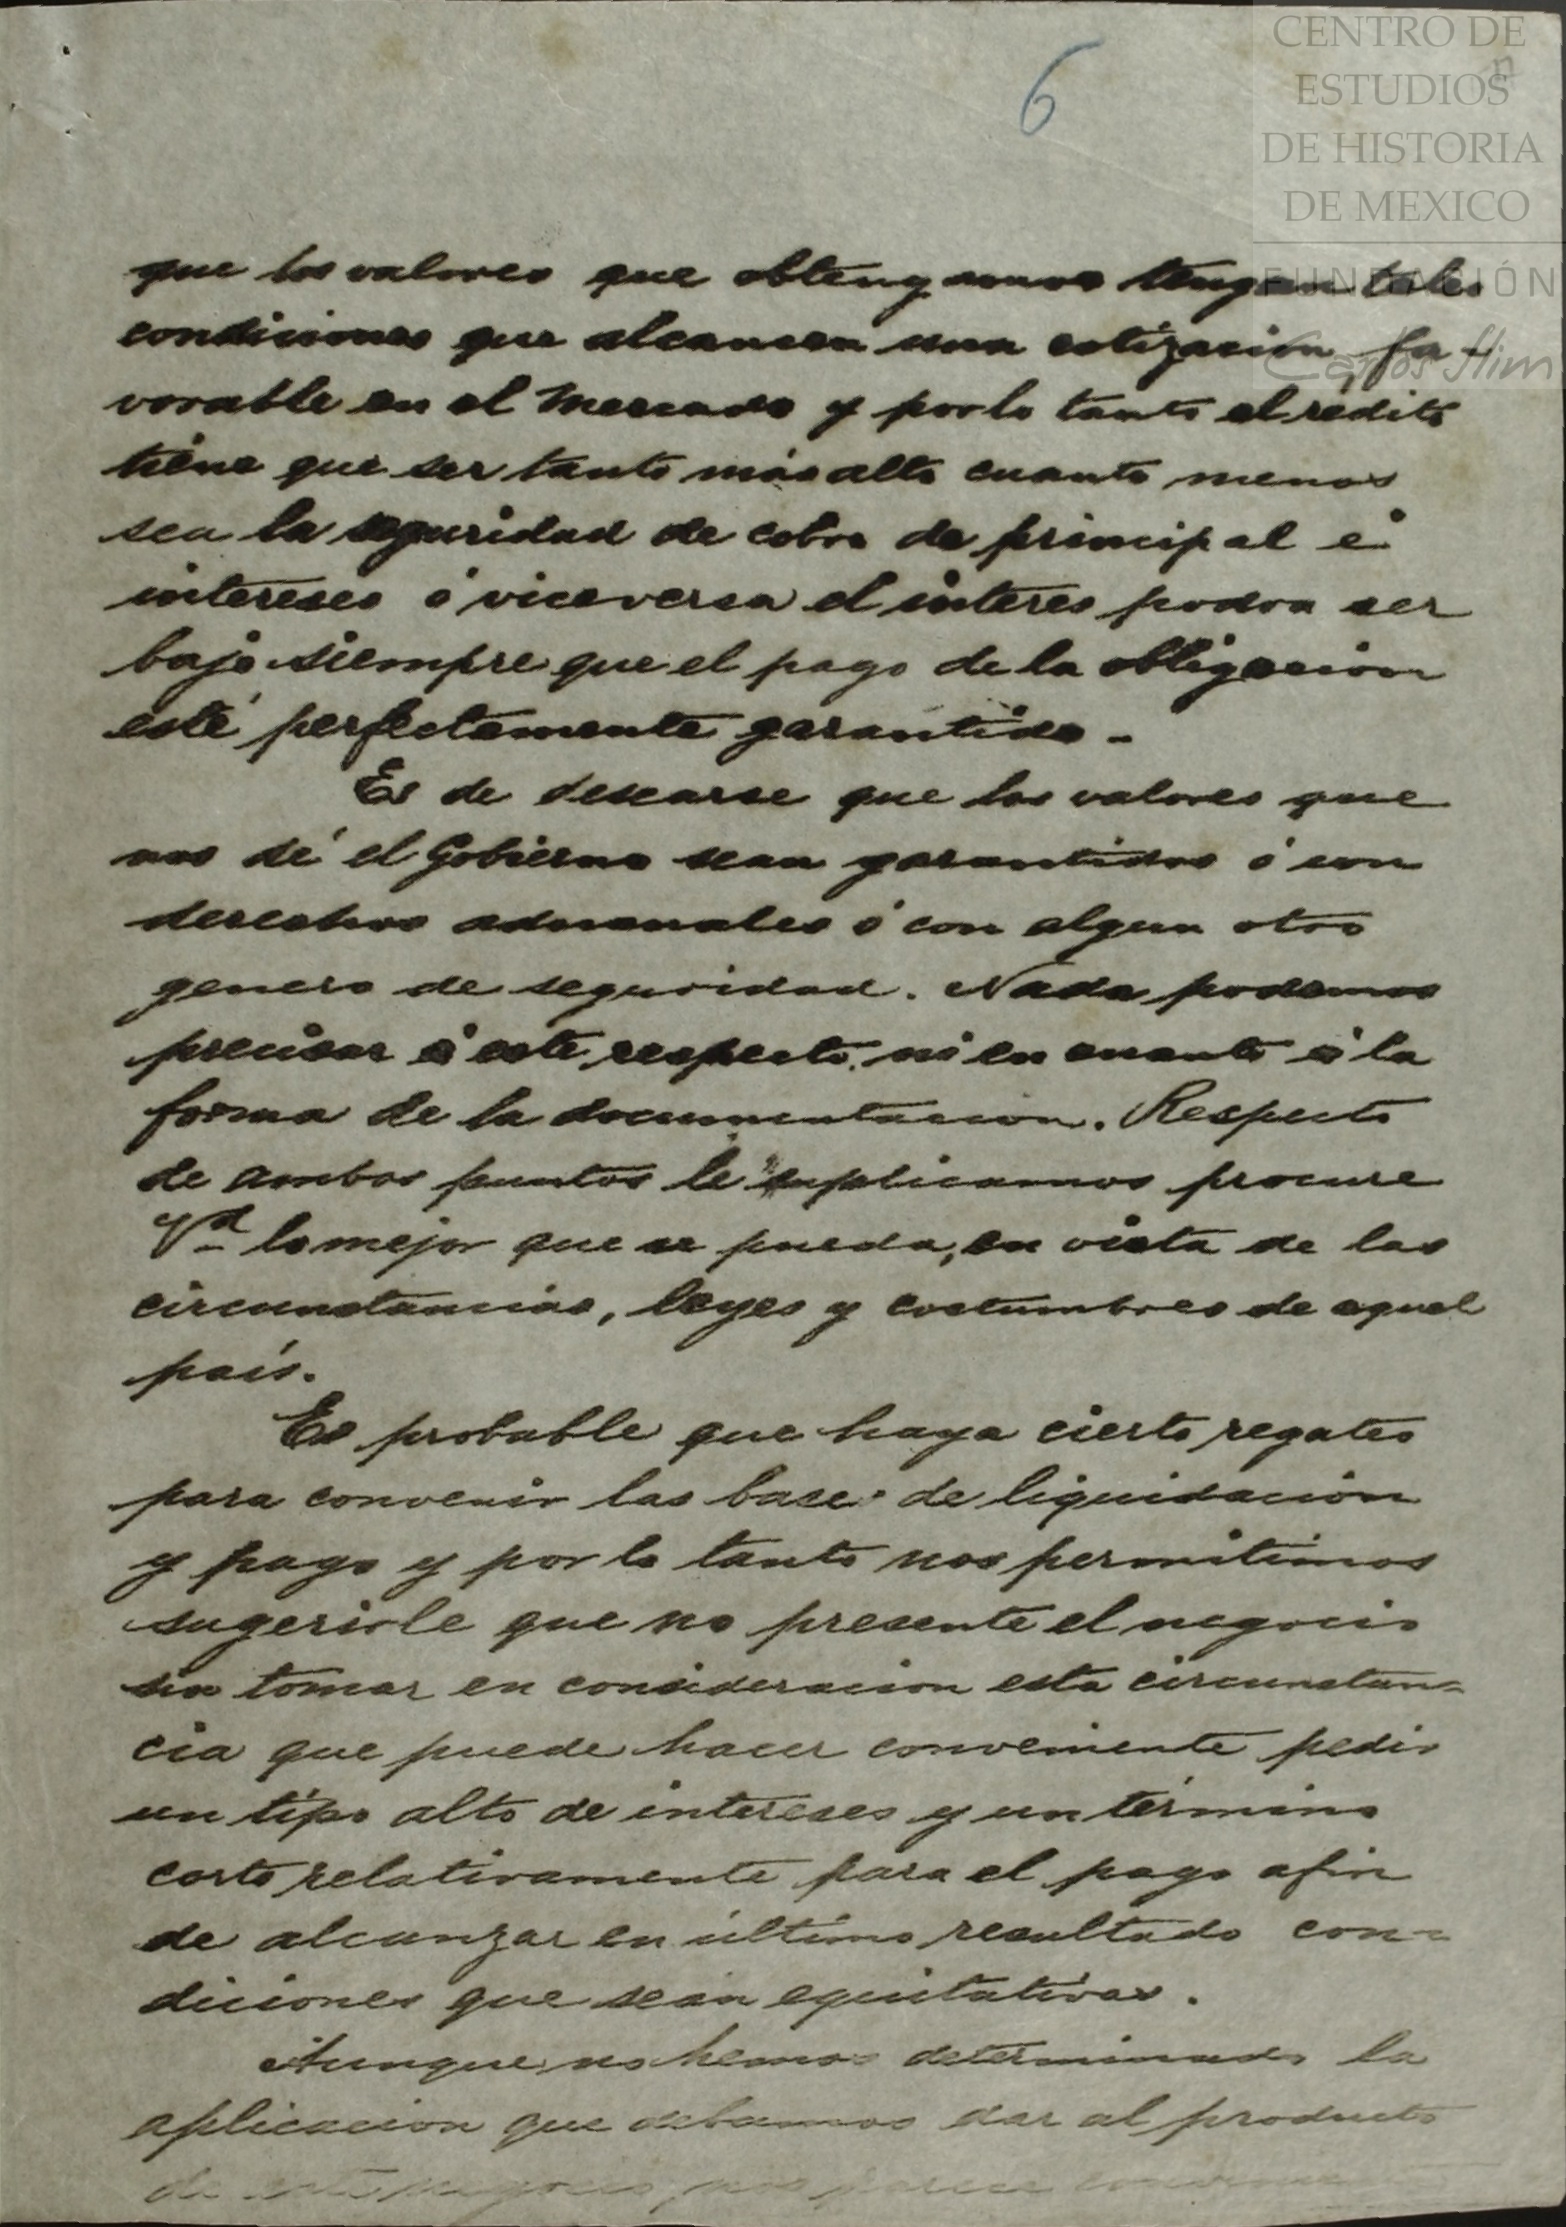 CENTRO DE
ESTUDIOS
DE HISTORIA
DE MEXICO
FUNDACIÓN
Carlos Slim
6
que los valores que obtengamos tengan tales
condiciones que alcancen una cotización fa-
vorable en el Mercado y por lo tanto el rédito
tiene que ser tanto más alto cuanto menos
sea la seguridad de cobro de principal é
intereses ó viceversa el interes podra ser
bajo siempre que el pago de la obligacion
esté perfectamente garantido -
Es de desearse que los valores que
nos dé el Gobierno sean garantidos ó con
derechos aduanales ó con algun otro
genero de seguridad. Nada podemos
precisar á este respecto, ni en cuanto á la
forma de la documentacion. Respecto
de ambos puntos le suplicamos procure
Vd lo mejor que se pueda, en vista de las
circunstancias, leyes y costumbres de aquel
país.
Es probable que haya cierto regateo
para convenir las bases de liquidación
y pago y por lo tanto nos permitimos
sugerirle que no presente el negocio
sin tomar en consideracion esta circunstan=
cia que puede hacer conveniente pedir
un tipo alto de intereses y un término
corto relativamente para el pago afin
de alcanzar en último resultado con=
diciones que sean equitativas.
Aunque no hemos determinado la
aplicacion que debamos dar al producto
de este negocio, nos parece